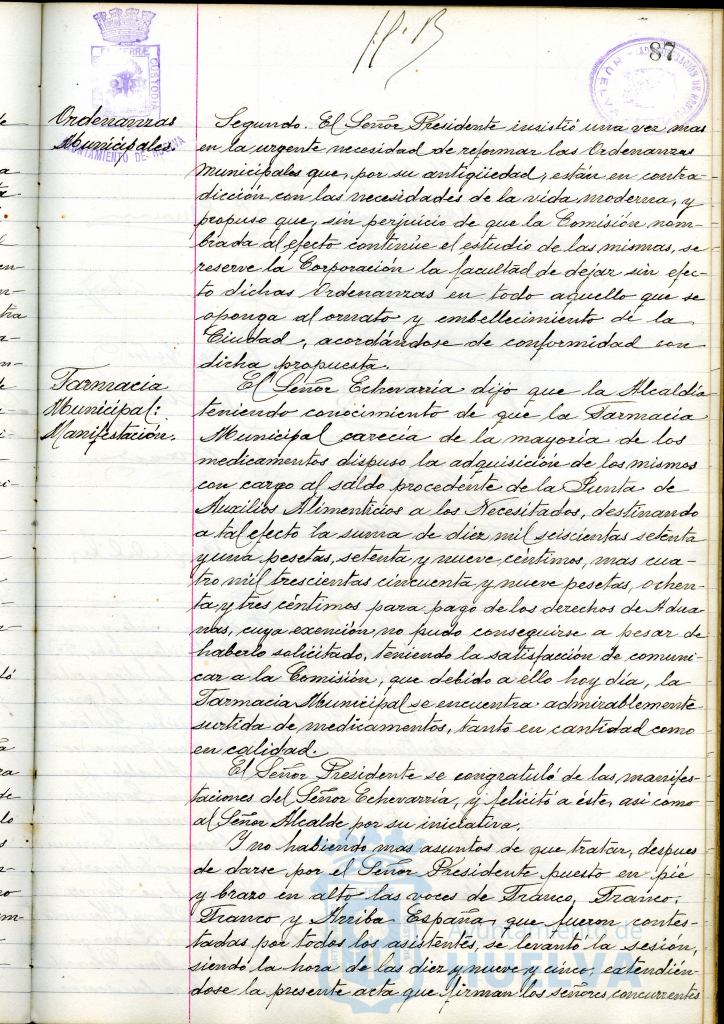 87
Ordenanzas
Municipales.
AYUNTAMIENTO DE HUELVA
Segundo. El Señor Presidente insistió una vez mas
en la urgente necesidad de reformar las Ordenanzas
Municipales que, por su antigüedad, están en contra-
dicción con las necesidades de la vida moderna, y
propuso que, sin perjuicio de que la Comisión nom-
brada al efecto continúe el estudio de las mismas, se
reserve la Corporación la facultad de dejar sin efec-
to dichas Ordenanzas en todo aquello que se
oponga al ornato y embellecimiento de la
Ciudad, acordándose de conformidad con
dicha propuesta.
Farmacia
Municipal:
Manifestación.
El Señor Echevarría dijo que la Alcaldía
teniendo conocimiento de que la Farmacia
Municipal carecía de la mayoría de los
medicamentos dispuso la adquisición de los mismos
con cargo al saldo procedente de la Junta de
Auxilios Alimenticios a los Necesitados, destinando
a tal efecto la suma de diez mil seiscientas setenta
y una pesetas, setenta y nueve céntimos, mas cua-
tro mil trescientas cincuenta y nueve pesetas, ochen-
ta y tres céntimos para pago de los derechos de Adua-
nas, cuya exención no pudo conseguirse a pesar de
haberlo solicitado, teniendo la satisfacción de comuni-
car a la Comisión, que debido a ello hoy día, la
Farmacia Municipal se encuentra admirablemente
surtida de medicamentos, tanto en cantidad como
en calidad.
El Señor Presidente se congratuló de las manifes-
taciones del Señor Echevarría, y felicitó a éste, asi como
al Señor Alcalde por su iniciativa.
Y no habiendo mas asuntos de que tratar, despues
de darse por el Señor Presidente puesto en pié
y brazo en alto las voces de Franco, Franco,
Franco y Arriba España, que fueron contes-
tadas por todos los asistentes, se levantó la sesion,
siendo la hora de las diez y nueve y cinco, extendién-
dose la presente acta que firman los señores concurrentes
Ayuntamiento de
HUELVA